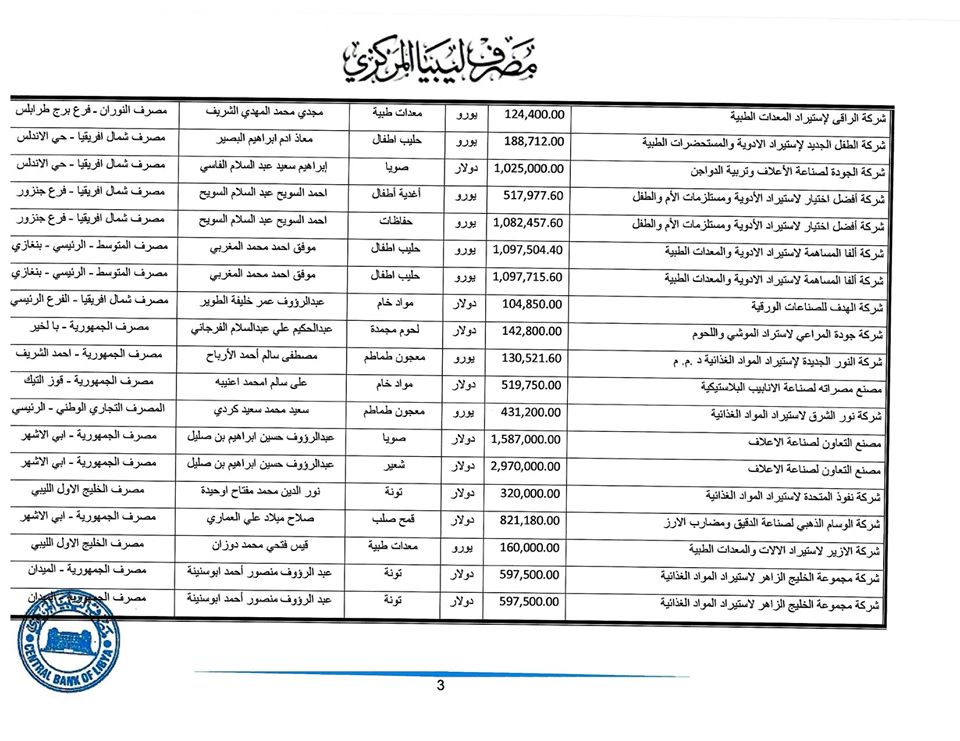 مصرف ليبيا المركزي
شركة الراقى لإستيراد المعدات الطبية 124,400.00 يورو معدات طبية مجدي محمد المهدي الشريف مصرف النوران - فرع برج طرابلس
شركة الطفل الجديد لإستيراد الادوية والمستحضرات الطبية 188,712.00 يورو حليب اطفال معاذ ادم ابراهيم البصير مصرف شمال افريقيا - حي الاندلس
شركة الجودة لصناعة الأعلاف وتربية الدواجن 1,025,000.00 دولار صويا إبراهيم سعيد عبد السلام الفاسي مصرف شمال افريقيا - حي الاندلس
شركة أفضل اختيار لاستيراد الأدوية ومستلزمات الأم والطفل 517,977.60 يورو أغدية أطفال احمد السويح عبد السلام السويح مصرف شمال افريقيا - فرع جنزور
شركة أفضل اختيار لاستيراد الأدوية ومستلزمات الأم والطفل 1,082,457.60 يورو حفاظات احمد السويح عبد السلام السويح مصرف شمال افريقيا - فرع جنزور
شركة ألفا المساهمة لاستيراد الادوية والمعدات الطبية 1,097,504.40 يورو حليب اطفال موفق احمد محمد المغربي مصرف المتوسط - الرئيسي - بنغازي
شركة ألفا المساهمة لاستيراد الادوية والمعدات الطبية 1,097,715.60 يورو حليب اطفال موفق احمد محمد المغربي مصرف المتوسط - الرئيسي - بنغازي
شركة الهدف للصناعات الورقية 104,850.00 دولار مواد خام عبدالرؤوف عمر خليفة الطوير مصرف شمال افريقيا - الفرع الرئيسي
شركة جودة المراعي لاستراد الموشي واللحوم 142,800.00 دولار لحوم مجمدة عبدالحكيم علي عبدالسلام الفرجاني مصرف الجمهورية - با لخير
شركة النور الجديدة لإستيراد المواد الغذائية د .م. م 130,521.60 يورو معجون طماطم مصطفى سالم أحمد الأرباح مصرف الجمهورية - احمد الشريف
مصنع مصراته لصناعة الانابيب البلاستيكية 519,750.00 دولار مواد خام على سالم امحمد اعنيبه مصرف الجمهورية - قوز التيك
شركة نور الشرق لاستيراد المواد الغذائية 431,200.00 يورو معجون طماطم سعيد محمد سعيد كردي المصرف التجاري الوطني - الرئيسي
مصنع التعاون لصناعة الاعلاف 1,587,000.00 دولار صويا عبدالرؤوف حسين ابراهيم بن صليل مصرف الجمهورية - ابي الاشهر
مصنع التعاون لصناعة الاعلاف 2,970,000.00 دولار شعير عبدالرؤوف حسين ابراهيم بن صليل مصرف الجمهورية - ابي الاشهر
شركة نفوذ المتحدة لاستيراد المواد الغذائية 320,000.00 دولار تونة نور الدين محمد مفتاح اوحيدة مصرف الخليج الاول الليبي
شركة الوسام الذهبي لصناعة الدقيق ومضارب الارز 821,180.00 دولار قمح صلب صلاح ميلاد علي العماري مصرف الجمهورية - ابي الاشهر
شركة الازير لاستيراد الالات والمعدات الطبية 160,000.00 يورو معدات طبية قيس فتحي محمد دوزان مصرف الخليج الاول الليبي
شركة مجموعة الخليج الزاهر لاستيراد المواد الغذائية 597,500.00 دولار تونة عبد الرؤوف منصور أحمد ابوسنينة مصرف الجمهورية - الميدان
شركة مجموعة الخليج الزاهر لاستيراد المواد الغذائية 597,500.00 دولار تونة عبد الرؤوف منصور أحمد ابوسنينة مصرف الجمهورية - الميدان
CENTRAL BANK OF LIBYA
3